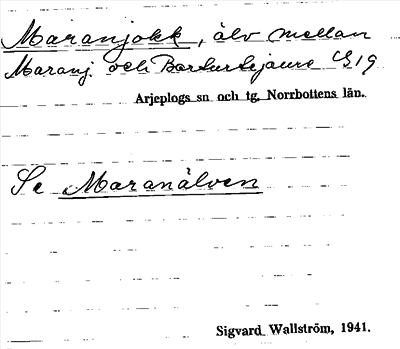 Maranjokk, älv mellan
Maranj. och Barturtejaure G19
Arjeplogs sn och tg. Norrbottens län.
Se Maranälven
Sigvard Wallström, 1941.